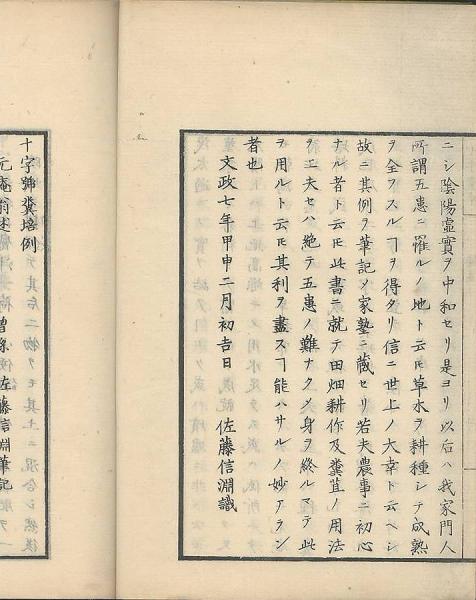 ニシ陰陽虛實ヲ中和セリ是ヨリ以后ハ我家門人
所謂五患ニ罹ルノ地ト云𪜈草木ヲ耕種シテ成熟
ヲ全フスルヿヲ得タリ信ニ世上ノ大幸ト云ヘシ
故ニ其例ヲ筆記〆家塾ニ藏セリ若夫農事ニ初心
ナル者ト云𪜈此書ニ就テ田畑耕作及糞苴ノ用法
ヲ工夫セハ絶テ五患ノ難ナク〆身ヲ終ルマテ此
ヲ用ルト云𪜈其利ヲ盡スヿ能ハサルノ妙アラン
者也
文政七年甲申二月初吉日 佐藤信淵識
十字號糞培例
元庵翁述 曾孫 佐藤信淵筆記